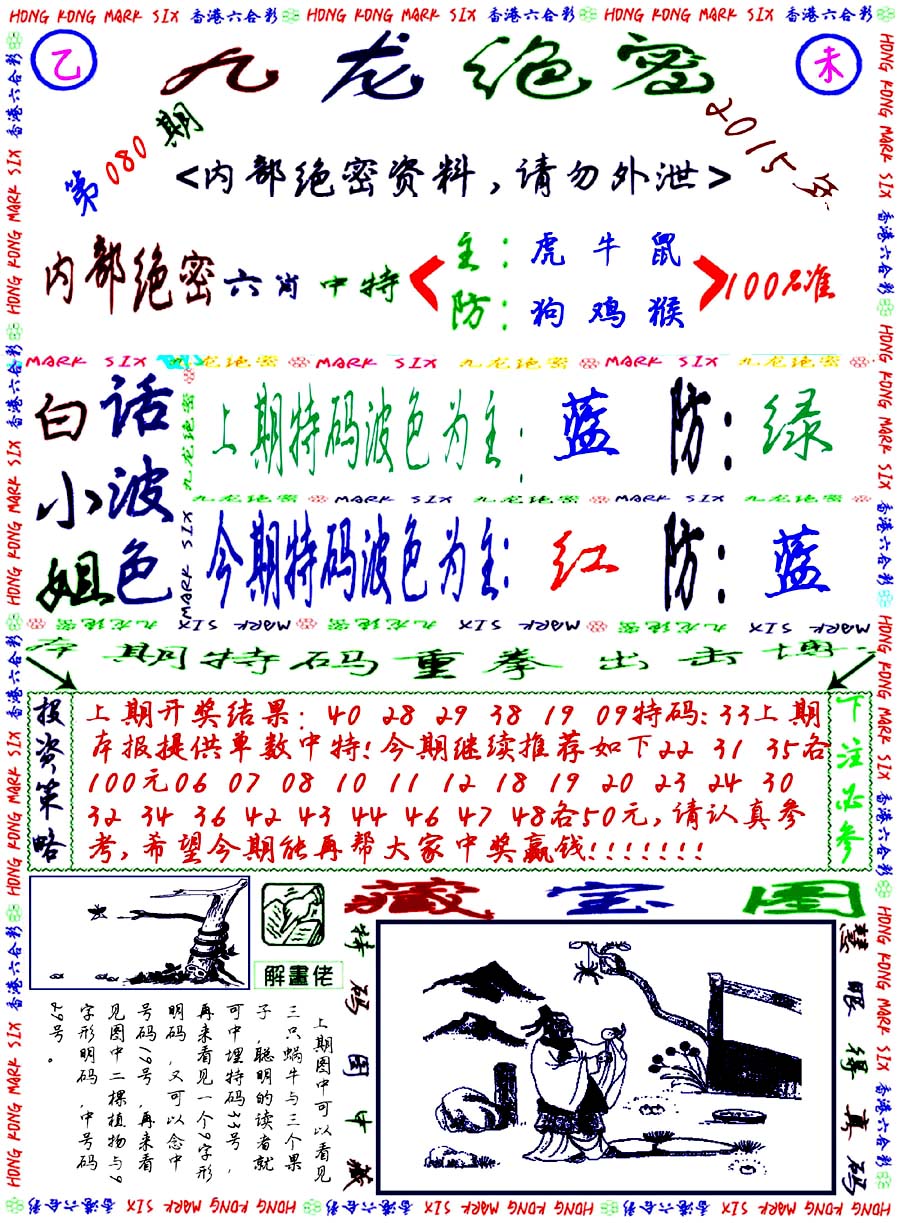 HONG KONG MARK SIX 香港六合彩 HONG KONG MARK SIX 香港六合彩 HONG KONG MARK SIX 香港六合彩
乙
九龙绝密
未
第080期
2015年
<内部绝密资料,请勿外泄>
内部绝密六肖中特
主:虎牛鼠
防:狗鸡猴
100%准
MARK SIX 九龙绝密 MARK SIX 九龙绝密 MARK SIX 九龙绝密
白话
小波
姐色
上期特码波色为主:蓝 防:绿
九龙绝密 MARK SIX 九龙绝密 MARK SIX 九龙绝密
今期特码波色为主:红 防:蓝
九龙绝密 MARK SIX 九龙绝密 MARK SIX 九龙绝密 MARK SIX
本期特码重拳出击博
投资策略
上期开奖结果:40 28 29 38 19 09特码:33上期
本报提供单数中特!今期继续推荐如下22 31 35各
100元06 07 08 10 11 12 18 19 20 23 24 30
32 34 36 42 43 44 46 47 48各50元,请认真参
考,希望今期能再帮大家中奖赢钱!!!!!!!
下注必参
藏宝图
解畫佬
上期图中可以看见
三只蜗牛与三个果
子,聪明的读者就
可中埋特码33号,
再来看见一个9字形
明码,又可以念中
号码19号,再来看
见图中二棵植物与9
字形明码,中号码
29号。
特码图中藏
慧眼得真码
HONG KONG MARK SIX 香港六合彩 HONG KONG MARK SIX 香港六合彩 HONG KONG MARK SIX 香港六合彩